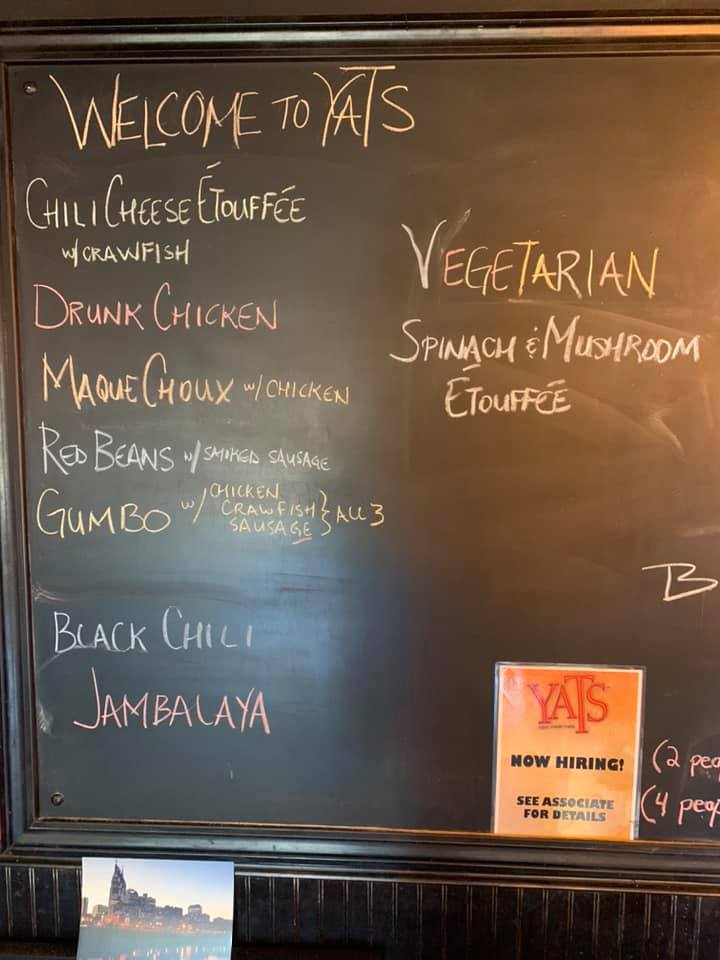 WELCOME TO YATS
CHILI CHEESE ÉTOUFFÉE
w/ CRAWFISH
DRUNK CHICKEN
MAQUE CHOUX w/ CHICKEN
RED BEANS w/ SMOKED SAUSAGE
GUMBO w/ CHICKEN
CRAWFISH } ALL 3
SAUSAGE
BLACK CHILI
JAMBALAYA
VEGETARIAN
SPINACH & MUSHROOM
ÉTOUFFÉE
B
YATS
NOW HIRING!
SEE ASSOCIATE
FOR DETAILS
(2 peo
(4 peop